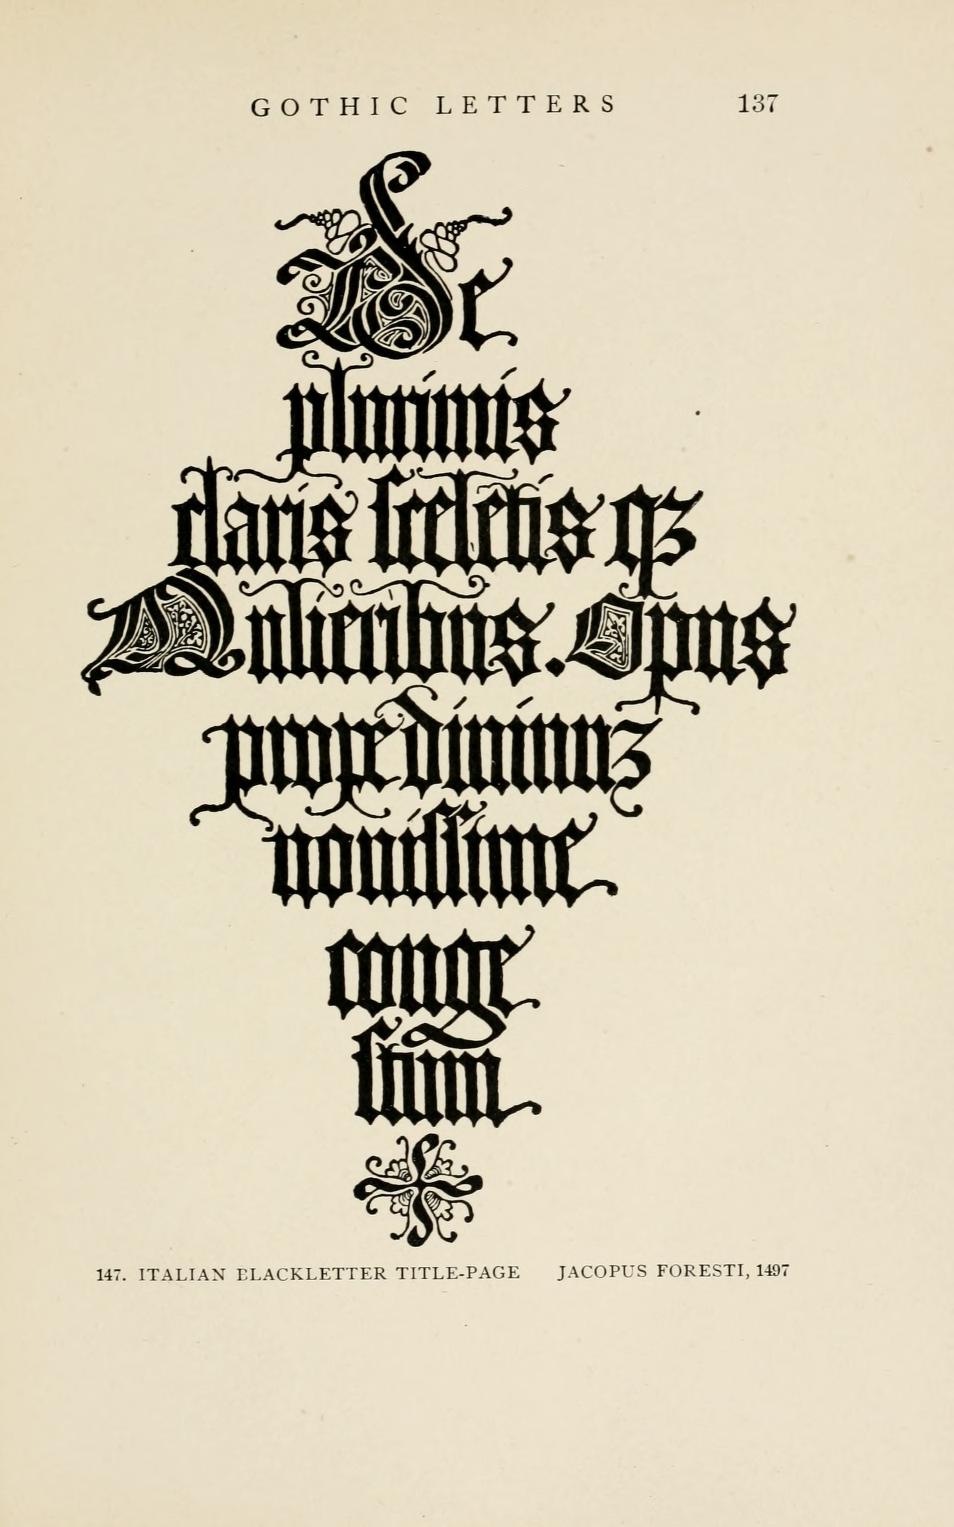 GOTHIC LETTERS 137
De
plurimis
claris sceletis qꝫ
Mulieribus. Opus
prope diuinuꝫ
nouissime
conge
stum
147. ITALIAN BLACKLETTER TITLE-PAGE JACOPUS FORESTI, 1497